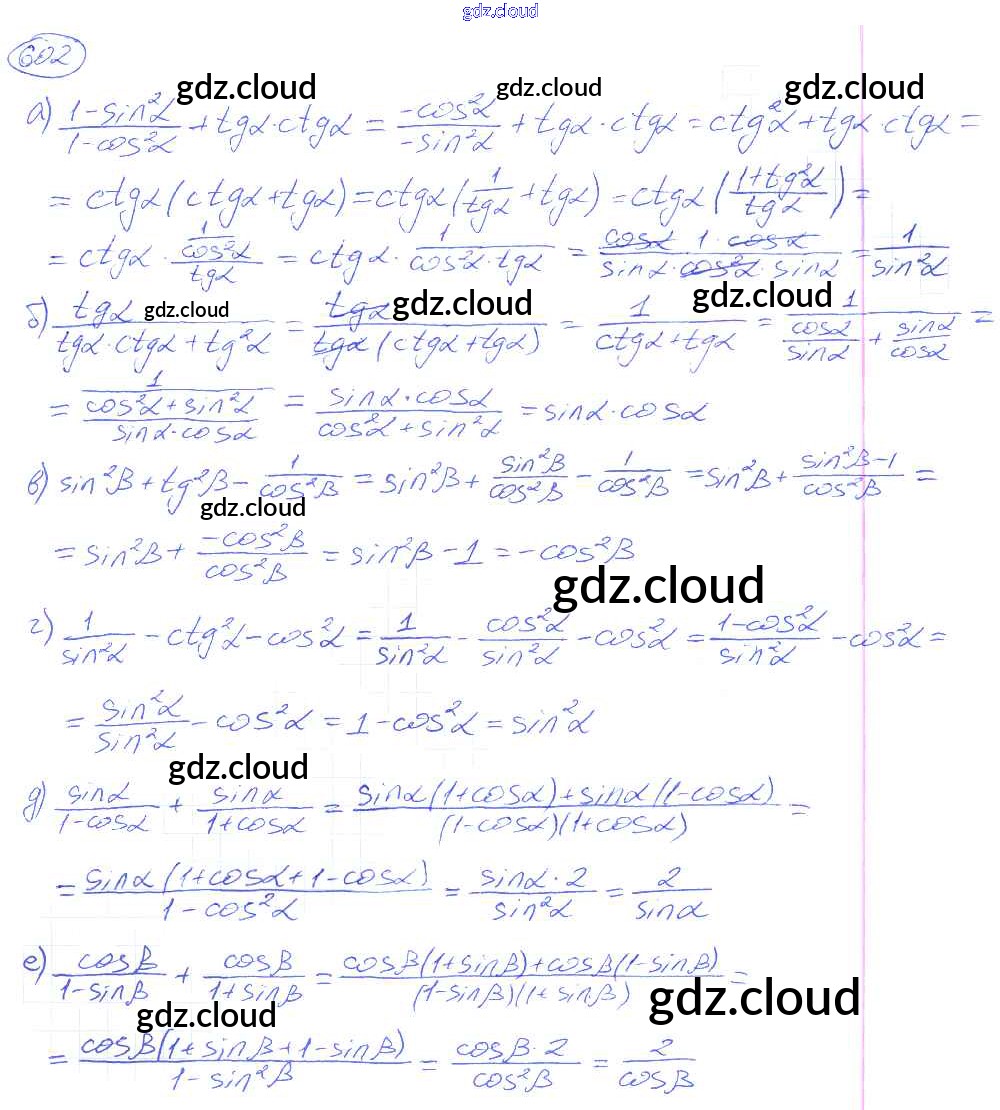 gdz.cloud
602
gdz.cloud gdz.cloud gdz.cloud
а) (1-sin²α)/(1-cos²α) + tgα·ctgα = (-cos²α)/(-sin²α) + tgα·ctgα = ctg²α + tgα·ctgα =
= ctgα(ctgα+tgα) = ctgα(1/tgα + tgα) = ctgα((1+tg²α)/tgα) =
= ctgα · (1/cos²α)/tgα = ctgα · 1/(cos²α·tgα) = (cosα·1·cosα)/(sinα·cos²α·sinα) = 1/sin²α
gdz.cloud gdz.cloud gdz.cloud
б) tgα/(tgα·ctgα+tg²α) = tgα/(tgα(ctgα+tgα)) = 1/(ctgα+tgα) = 1/(cosα/sinα + sinα/cosα) =
= 1/((cos²α+sin²α)/(sinα·cosα)) = (sinα·cosα)/(cos²α+sin²α) = sinα·cosα
в) sin²β + tg²β - 1/cos²β = sin²β + sin²β/cos²β - 1/cos²β = sin²β + (sin²β-1)/cos²β =
gdz.cloud
= sin²β + (-cos²β)/cos²β = sin²β - 1 = -cos²β
gdz.cloud
г) 1/sin²α - ctg²α - cos²α = 1/sin²α - cos²α/sin²α - cos²α = (1-cos²α)/sin²α - cos²α =
= sin²α/sin²α - cos²α = 1 - cos²α = sin²α
gdz.cloud
д) sinα/(1-cosα) + sinα/(1+cosα) = (sinα(1+cosα)+sinα(1-cosα))/((1-cosα)(1+cosα)) =
= (sinα(1+cosα+1-cosα))/(1-cos²α) = (sinα·2)/sin²α = 2/sinα
е) cosβ/(1-sinβ) + cosβ/(1+sinβ) = (cosβ(1+sinβ)+cosβ(1-sinβ))/((1-sinβ)(1+sinβ)) =
gdz.cloud gdz.cloud
= (cosβ(1+sinβ+1-sinβ))/(1-sin²β) = (cosβ·2)/cos²β = 2/cosβ